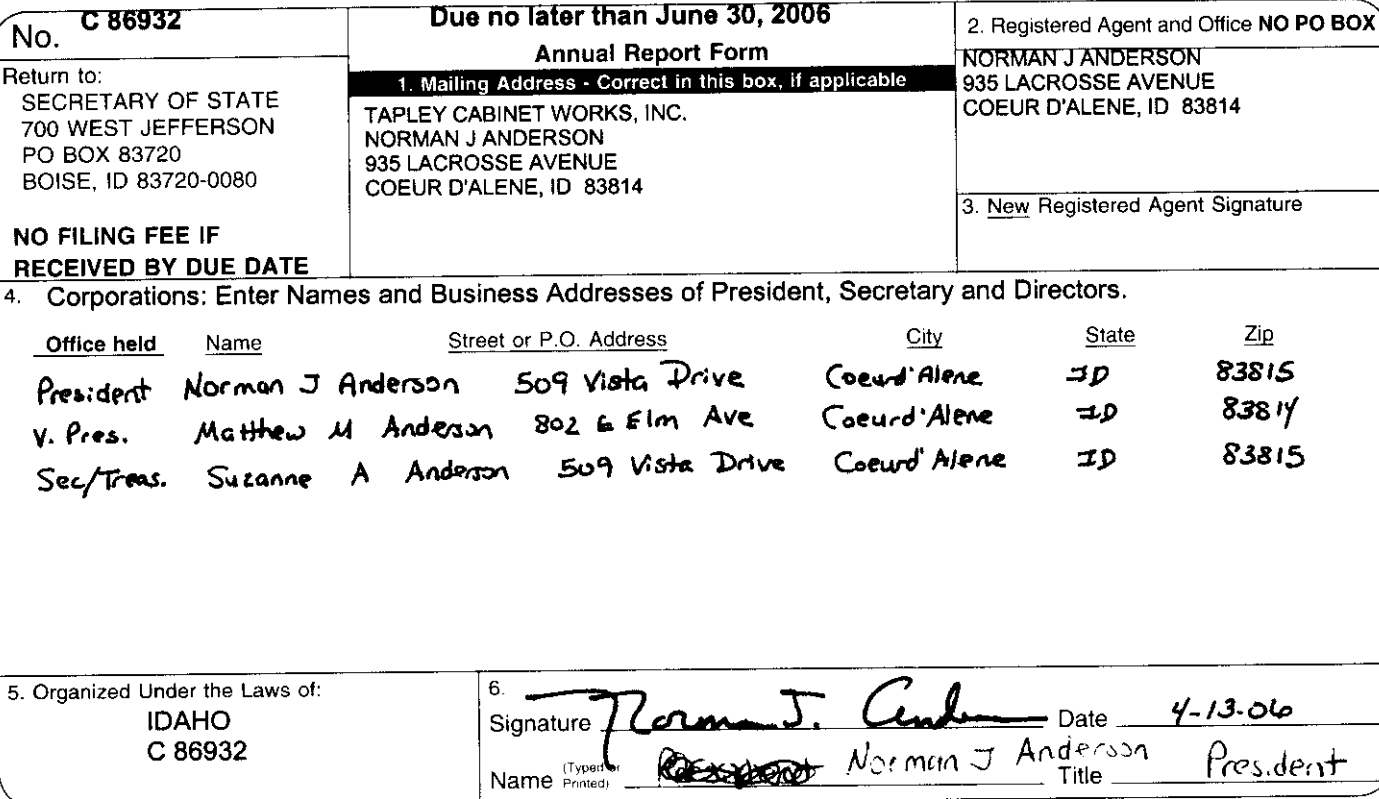 No. C 86932
Return to:
SECRETARY OF STATE
700 WEST JEFFERSON
PO BOX 83720
BOISE, ID 83720-0080
NO FILING FEE IF
RECEIVED BY DUE DATE
Due no later than June 30, 2006
Annual Report Form
1. Mailing Address - Correct in this box, if applicable
TAPLEY CABINET WORKS, INC.
NORMAN J ANDERSON
935 LACROSSE AVENUE
COEUR D'ALENE, ID 83814
2. Registered Agent and Office NO PO BOX
NORMAN J ANDERSON
935 LACROSSE AVENUE
COEUR D'ALENE, ID 83814
3. New Registered Agent Signature
4. Corporations: Enter Names and Business Addresses of President, Secretary and Directors.
Office held Name Street or P.O. Address City State Zip
President Norman J Anderson 509 Vista Drive Coeurd'Alene ID 83815
V. Pres. Matthew M Anderson 802 E Elm Ave Coeurd'Alene ID 83814
Sec/Treas. Suzanne A Anderson 509 Vista Drive Coeurd'Alene ID 83815
5. Organized Under the Laws of:
IDAHO
C 86932
6.
Signature Norman J. Anderson Date 4-13-06
Name (Typed or Printed) Norman J Anderson Title President